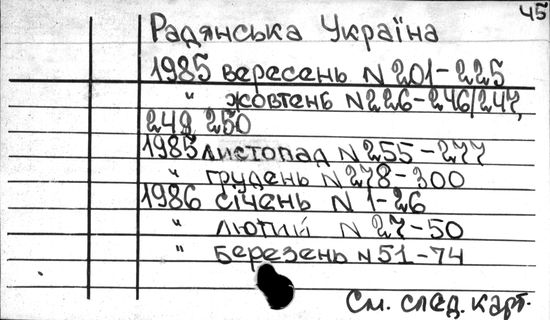 45
Радянська Україна
1985 вересень N 201-225
" жовтень N 226-246/247,
249, 250
1985 листопад N 255-277
" грудень N 278-300
1986 січень N 1-26
" лютий N 27-50
" березень N 51-74
См. след. карт.